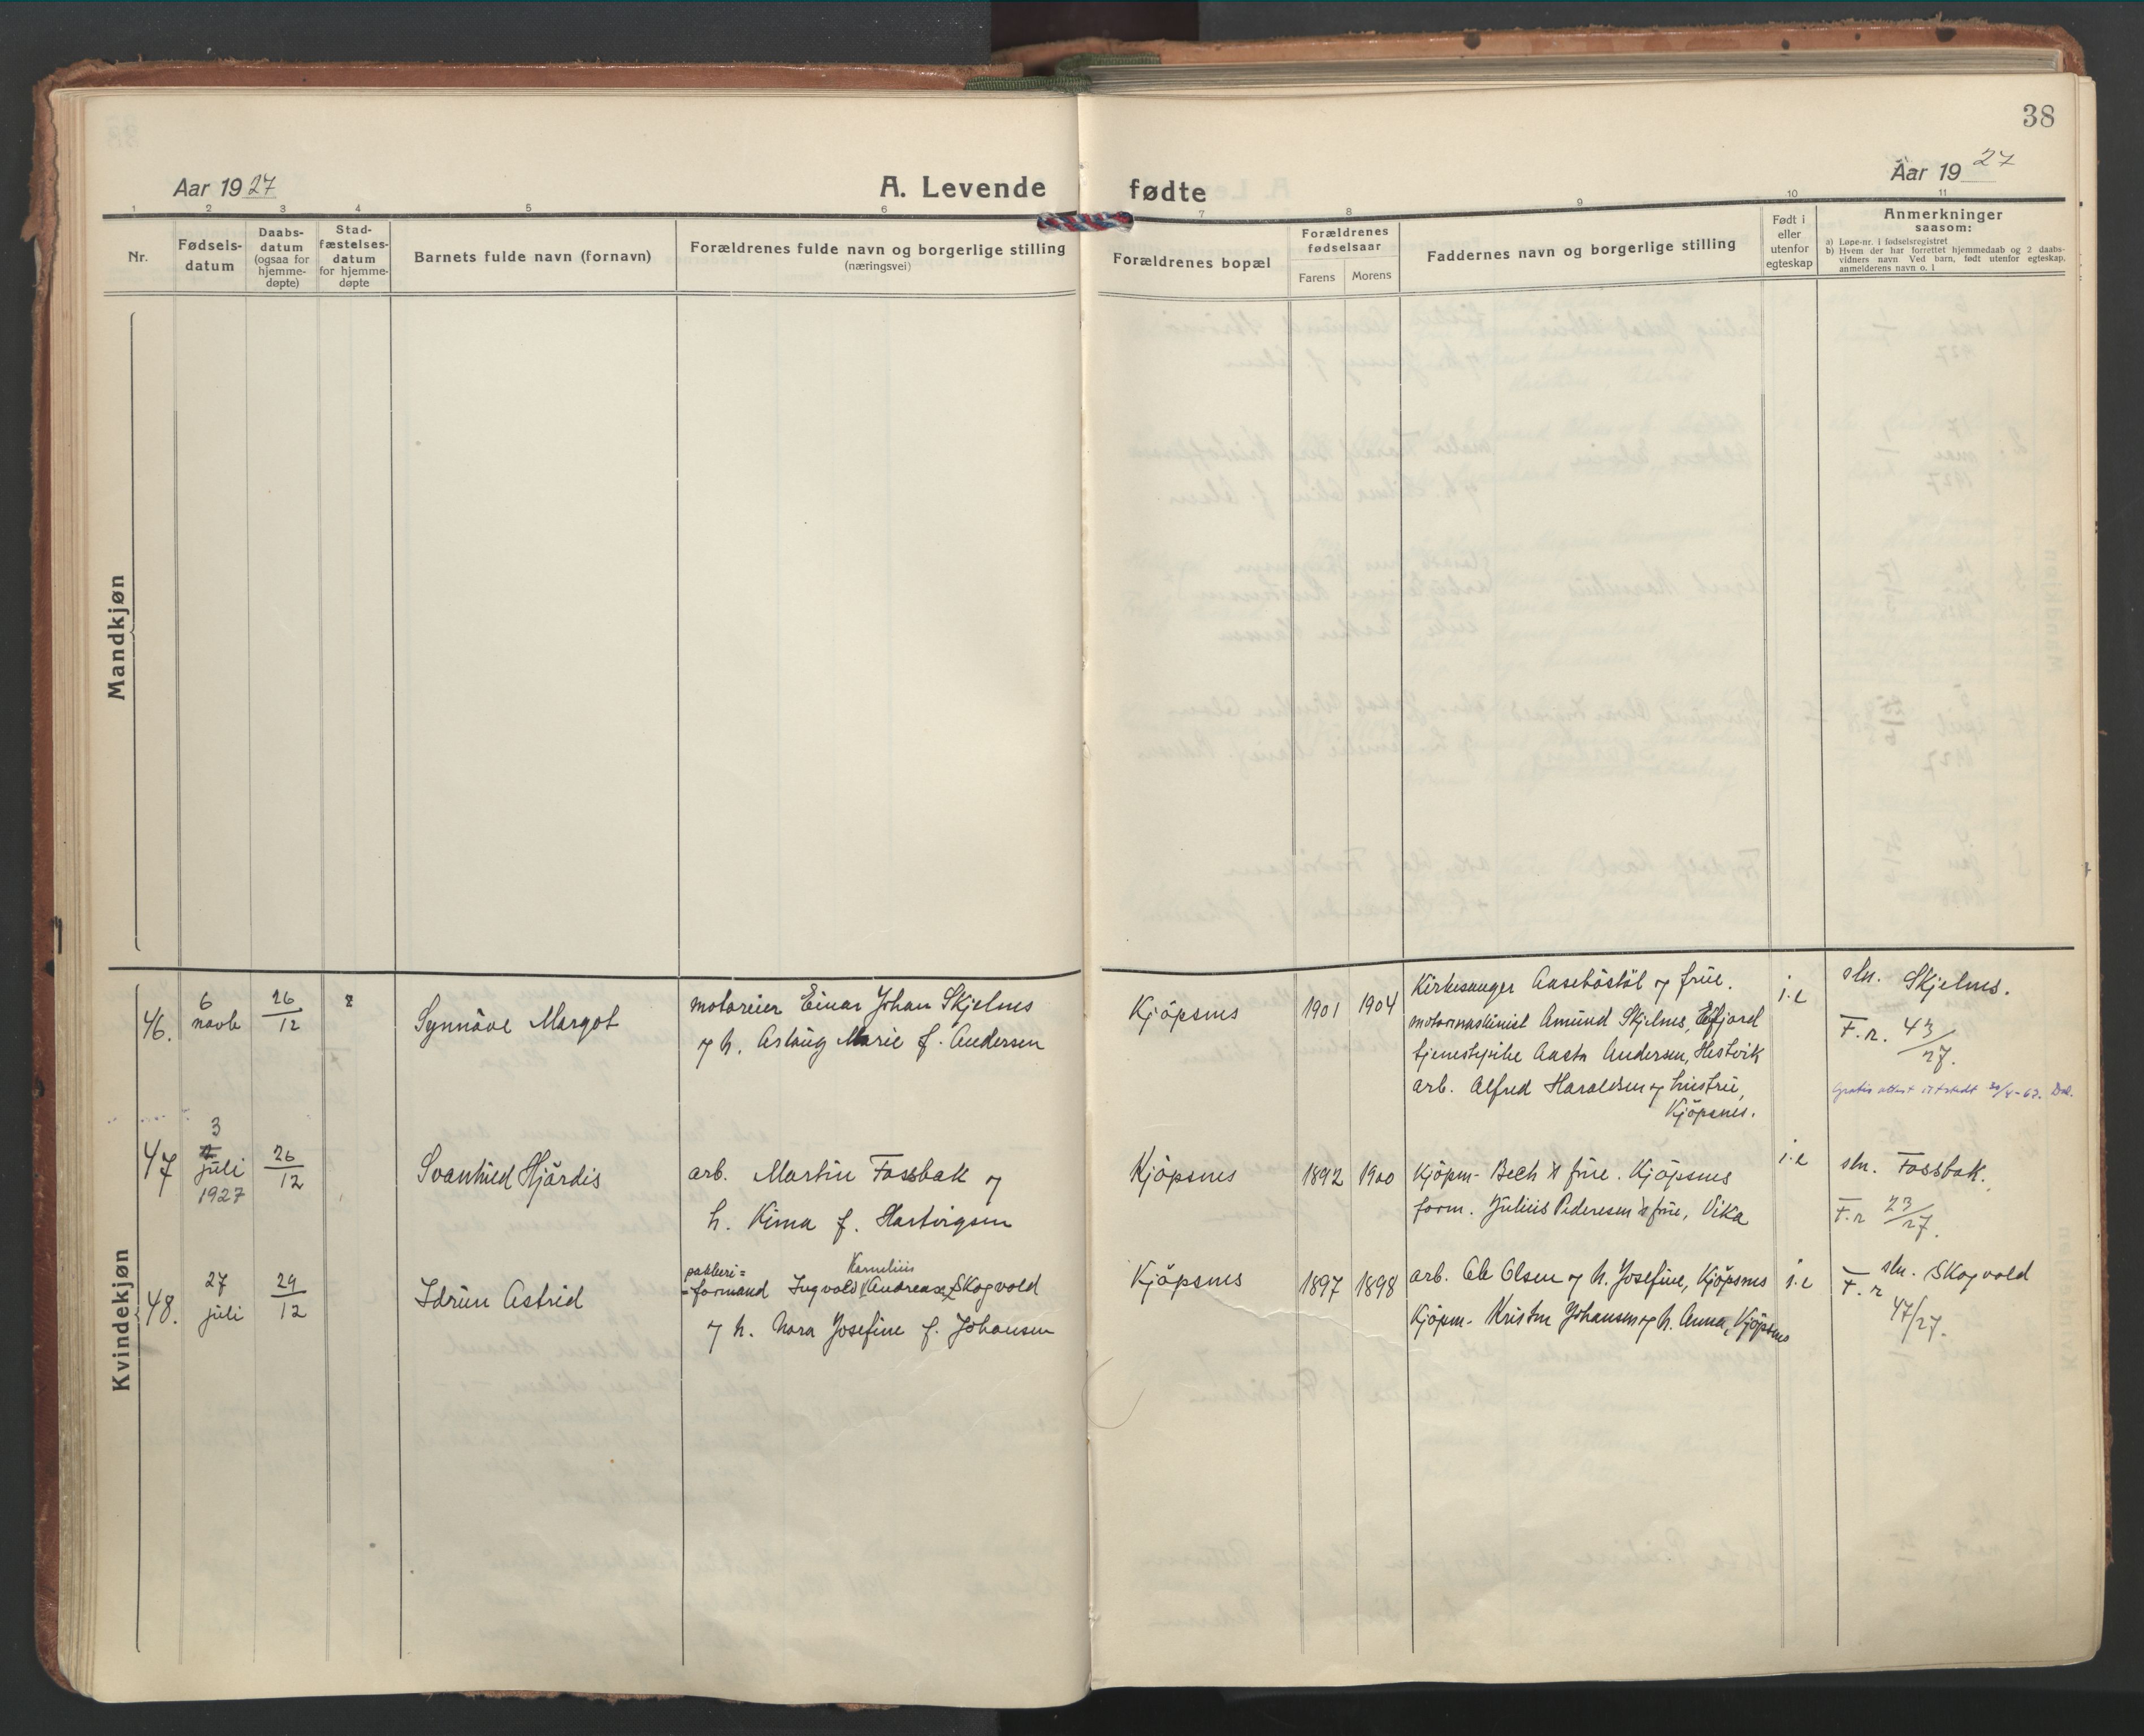 38
Aar 1927
A. Levende fødte
Aar 1927
1 2 3 4 5 6 7 8 9 10 11
Nr.
Fødsels-
datum
Daabs-
datum
(ogsaa for
hjemme-
døpte)
Stad-
fæstelses-
datum
for hjemme-
døpte
Barnets fulde navn (fornavn)
Forældrenes fulde navn og borgerlige stilling
(næringsvei)
Forældrenes bopæl
Forældrenes
fødselsaar
Farens
Morens
Faddernes navn og borgerlige stilling
Født i
eller
utenfor
egteskap
Anmerkninger
saasom:
a) Løpe-nr. i fødselsregistret
b) Hvem der har forrettet hjemmedaab og 2 daabs-
vidners navn Ved barn, født utenfor egteskap,
anmelderens navn o. l
Mandkjøn
Kvindekjøn
46.
6
novb
26/12
Synnöve Margot
motoreier Einar Johan Skjelnes
og h. Aslaug Marie f. Andersen
Kjöpsnes
1901
1904
Kirkesanger Aaseböstöl og frue.
motormaskinist Amund Skjelnes, Efjord
tjenestepike Aasta Andersen, Hestvik
arb. Alfred Haraldsen og hustru,
Kjöpsnes.
i.e
sln. Skjelnes.
F.r. 43/27.
Gratis attest utstedt
47
3
juli
1927
26/12
Svanhild Hjördis
arb. Martin Fossbak og
h. Kima f. Hartvigsen
Kjöpsnes
1892
1900
Kjöpm. Bech & frue. Kjöpsnes
form. Julius Pedersen & frue, Vika
i.e
sln. Fossbak.
F.r 23/27.
48.
27
juli
29/12
Idrun Astrid
pakkeri=
Kornelius
=formand Ingvald (Andreas) Skogvold
og h. Nora Josefine f. Johansen
Kjöpsnes
1897
1898
arb. Ole Olsen og h. Josefine, Kjöpsnes
Kjöpm. Kristen Johansen og h. Anna, Kjöpsnes
i.e
sln. Skogvold
F.r
47/27.